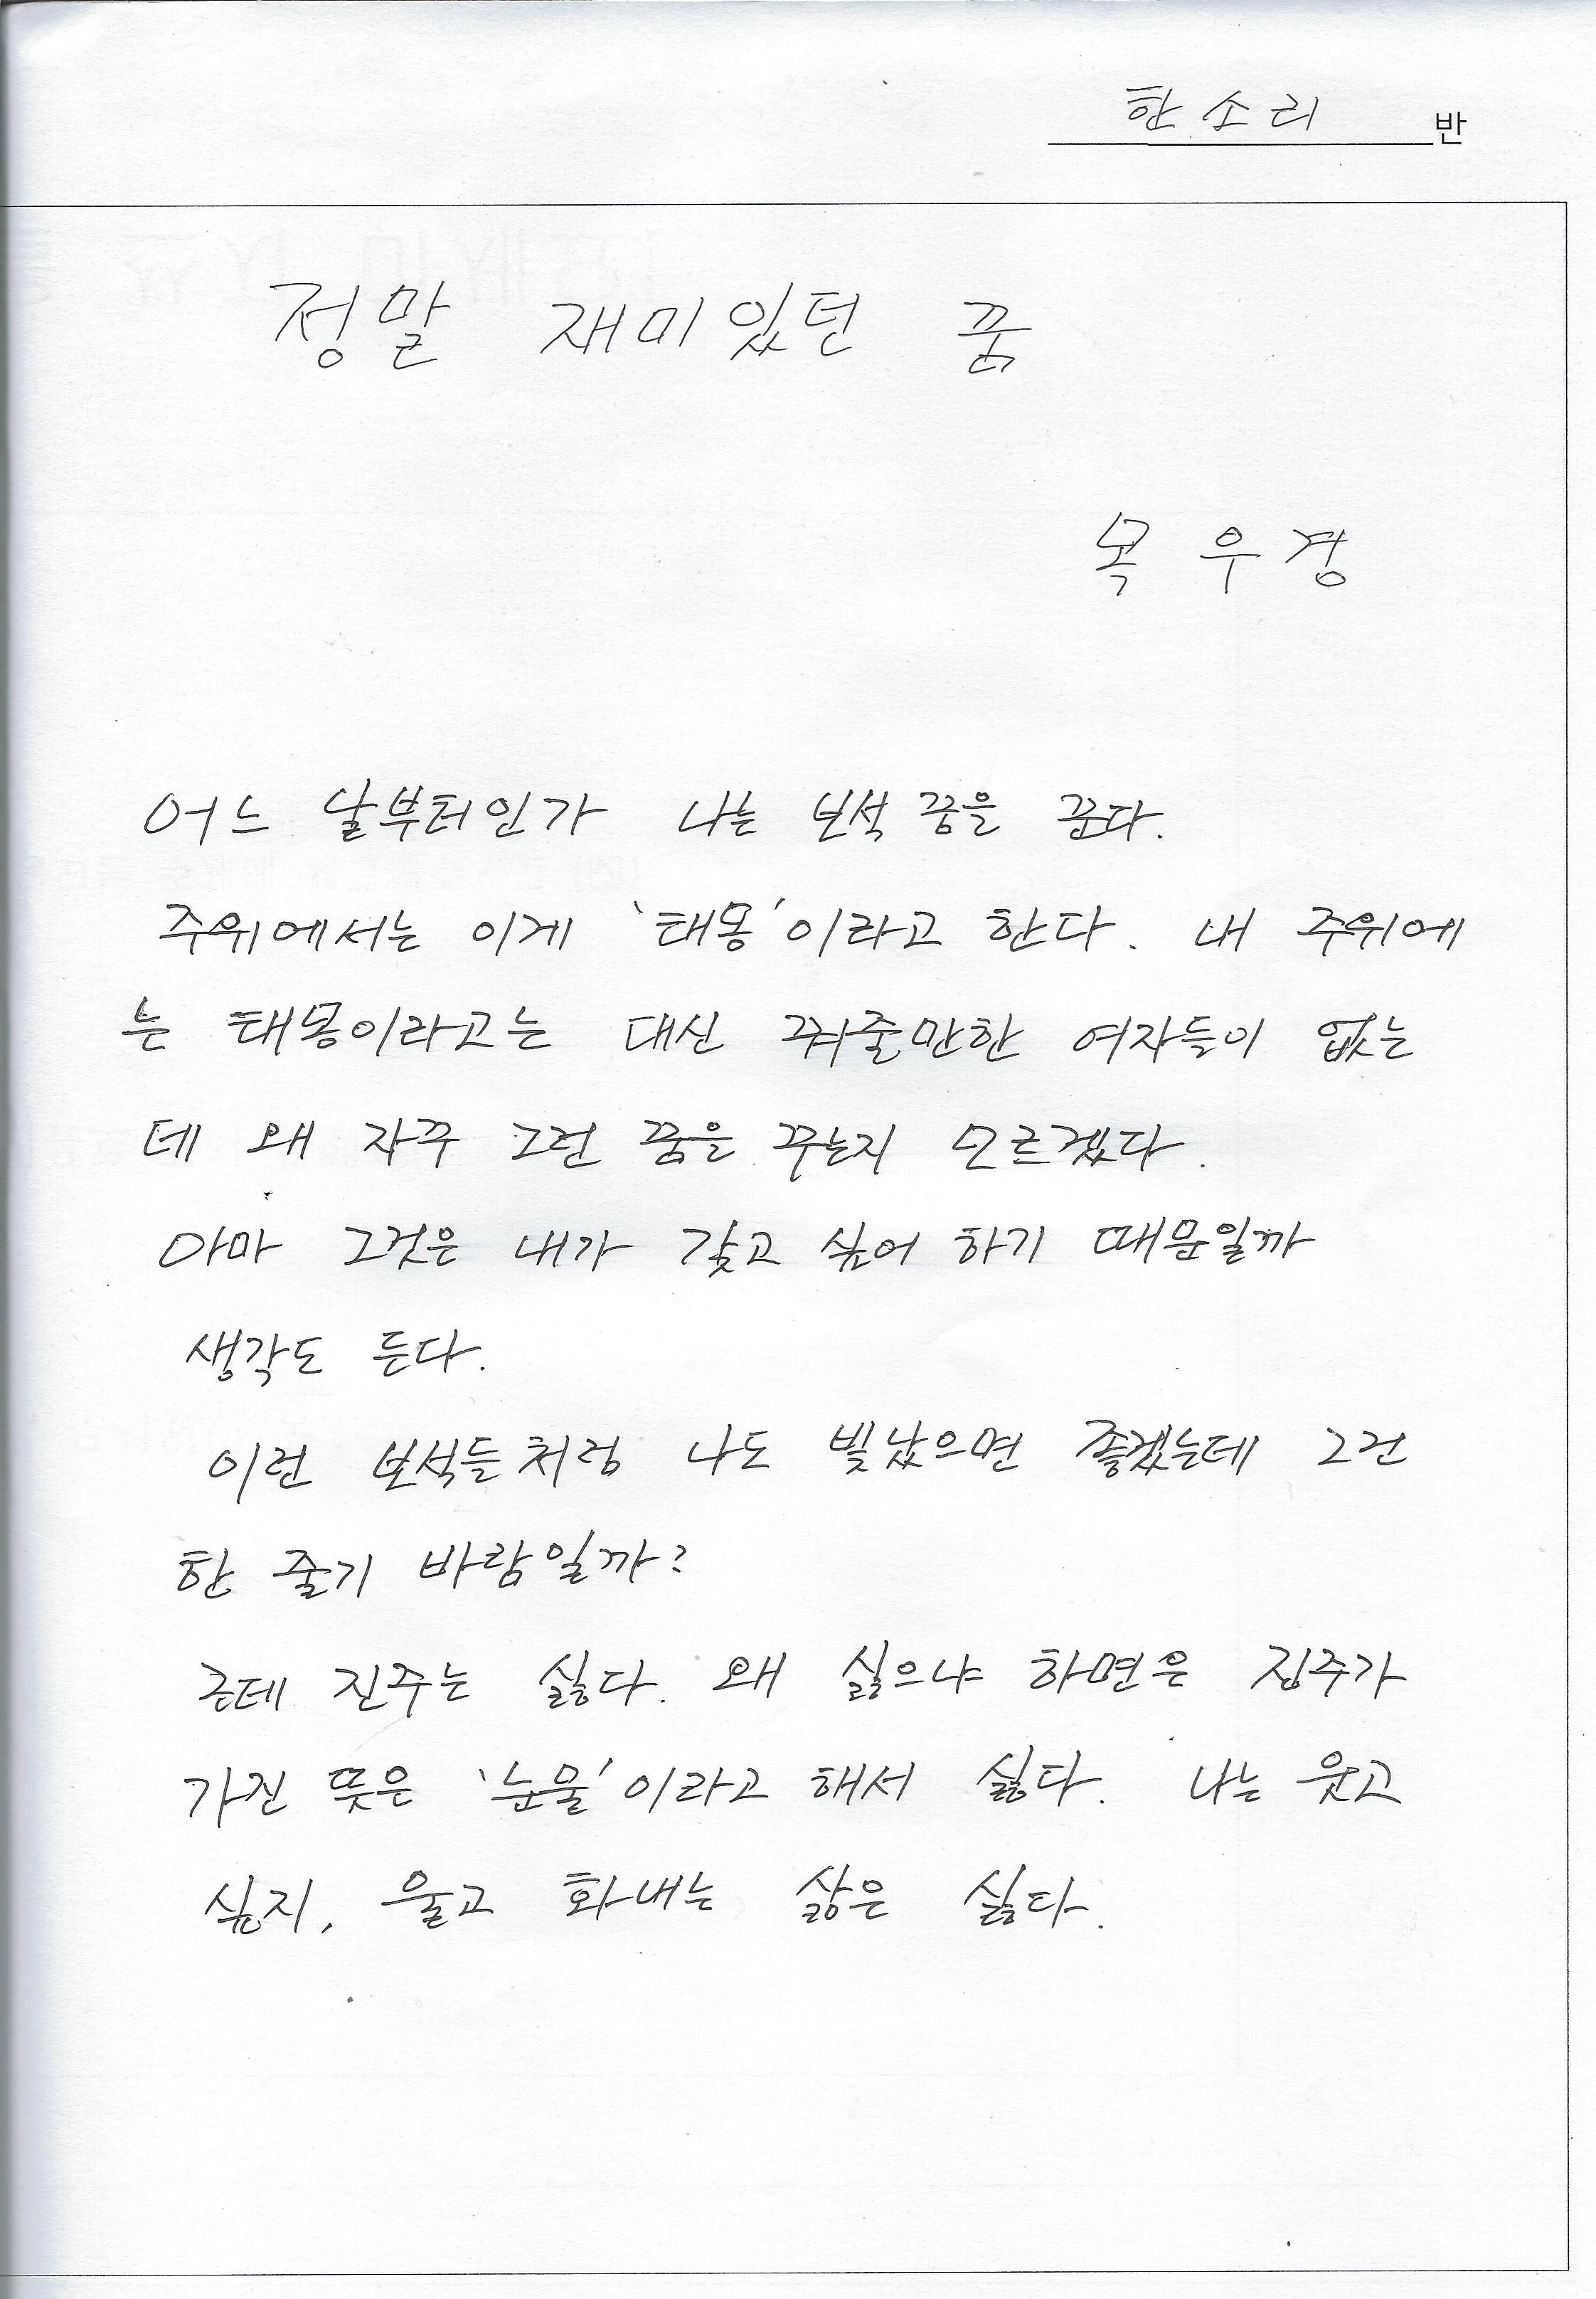 한소리 반
정말 재미있던 꿈
목우경
어느 날부터인가 나는 보석 꿈을 꾼다.
주위에서는 이게 '태몽'이라고 한다. 내 주위에
는 태몽이라고는 대신 꿔줄만한 여자들이 없는
데 왜 자꾸 그런 꿈을 꾸는지 모르겠다.
아마 그것은 내가 갖고 싶어 하기 때문일까
생각도 든다.
이런 보석들처럼 나도 빛났으면 좋겠는데 그건
한 줄기 바람일까?
근데 진주는 싫다. 왜 싫으냐 하면은 진주가
가진 뜻은 '눈물'이라고 해서 싫다. 나는 웃고
싶지, 울고 화내는 삶은 싫다.